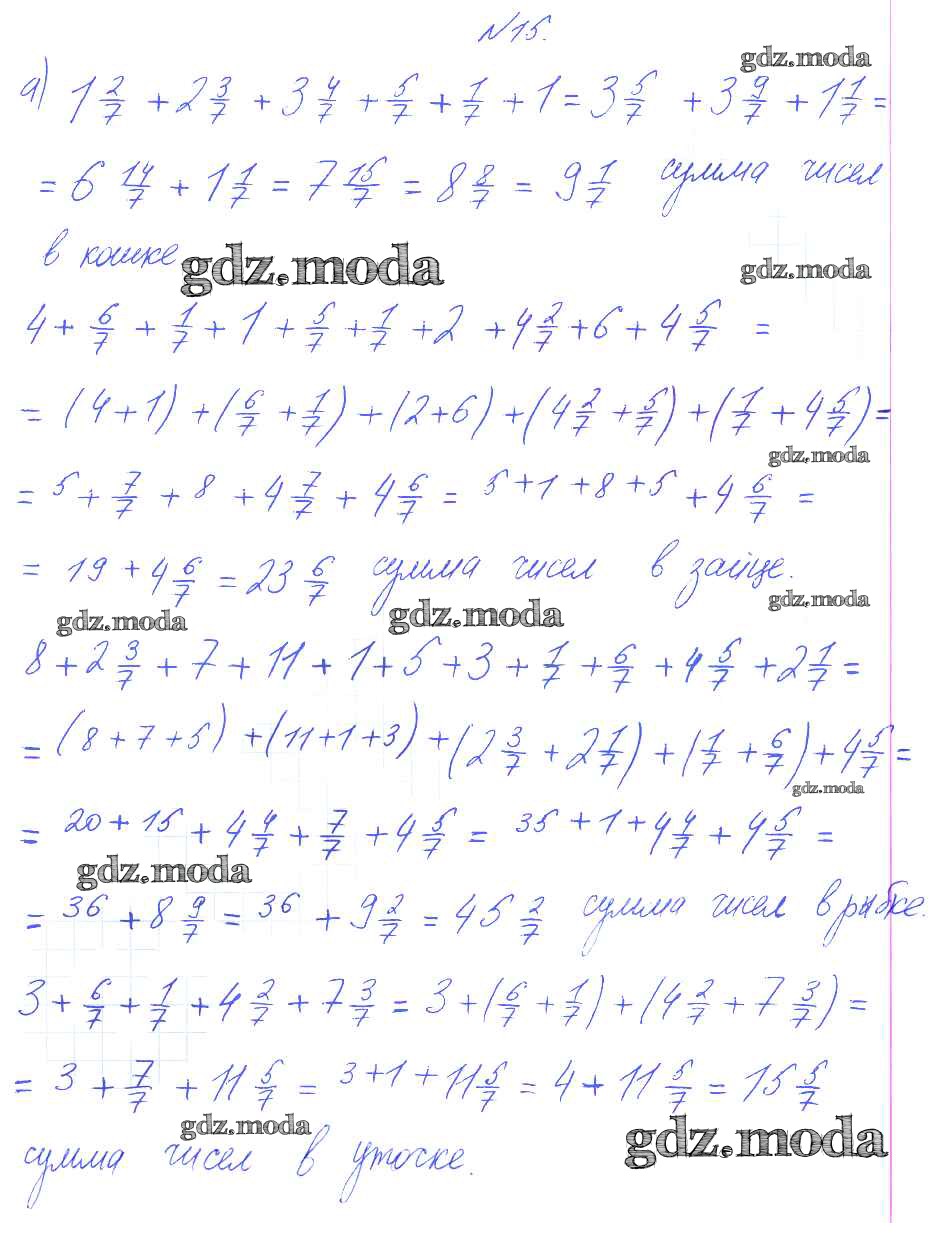 №15.
gdz.moda
а) 1 2/7 + 2 3/7 + 3 4/7 + 5/7 + 1/7 + 1 = 3 5/7 + 3 9/7 + 1 1/7 =
= 6 14/7 + 1 1/7 = 7 15/7 = 8 8/7 = 9 1/7 сумма чисел
в кошке
gdz.moda
gdz.moda
4 + 6/7 + 1/7 + 1 + 5/7 + 1/7 + 2 + 4 2/7 + 6 + 4 5/7 =
= (4 + 1) + (6/7 + 1/7) + (2 + 6) + (4 2/7 + 5/7) + (1/7 + 4 5/7) =
gdz.moda
= 5 + 7/7 + 8 + 4 7/7 + 4 6/7 = 5 + 1 + 8 + 5 + 4 6/7 =
= 19 + 4 6/7 = 23 6/7 сумма чисел в зайце.
gdz.moda
gdz.moda
gdz.moda
8 + 2 3/7 + 7 + 11 + 1 + 5 + 3 + 1/7 + 6/7 + 4 5/7 + 2 1/7 =
= (8 + 7 + 5) + (11 + 1 + 3) + (2 3/7 + 2 1/7) + (1/7 + 6/7) + 4 5/7 =
gdz.moda
= 20 + 15 + 4 4/7 + 7/7 + 4 5/7 = 35 + 1 + 4 4/7 + 4 5/7 =
gdz.moda
= 36 + 8 9/7 = 36 + 9 2/7 = 45 2/7 сумма чисел в рыбке.
3 + 6/7 + 1/7 + 4 2/7 + 7 3/7 = 3 + (6/7 + 1/7) + (4 2/7 + 7 3/7) =
= 3 + 7/7 + 11 5/7 = 3 + 1 + 11 5/7 = 4 + 11 5/7 = 15 5/7
gdz.moda
gdz.moda
сумма чисел в уточке.